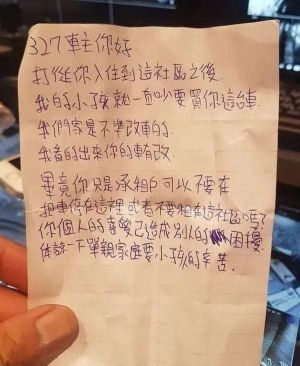 327車主你好
打從你入住到這社區之後.
我的小孩就一直吵要買你這台車.
我們家是不準改車的.
我看的出來你的車有改.
畢竟你只是承租戶可以不要在
把車停在這裡或者不要租在這社區嗎?
你個人的喜愛已造成別人的困擾
体諒一下單親家庭要小孩的辛苦.